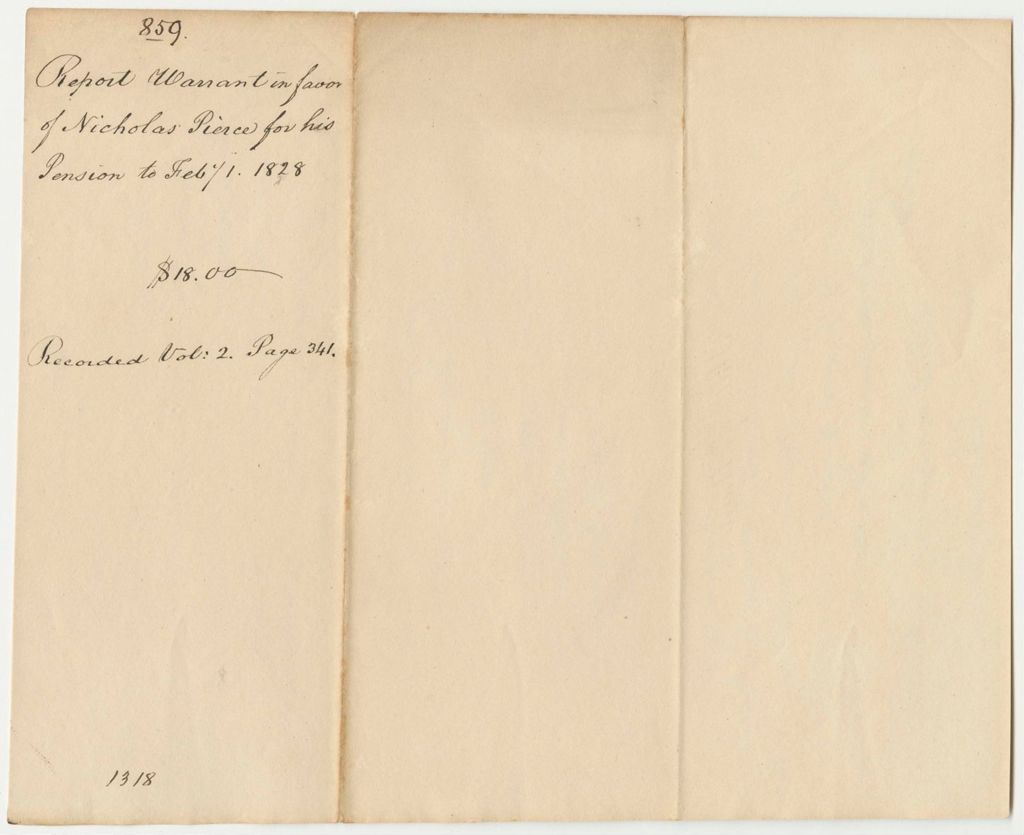 859.
Report Warrant in favor
of Nicholas Pierce for his
Pension to Feby 1. 1828
$18.00
Recorded Vol: 2. Page 341.
1318